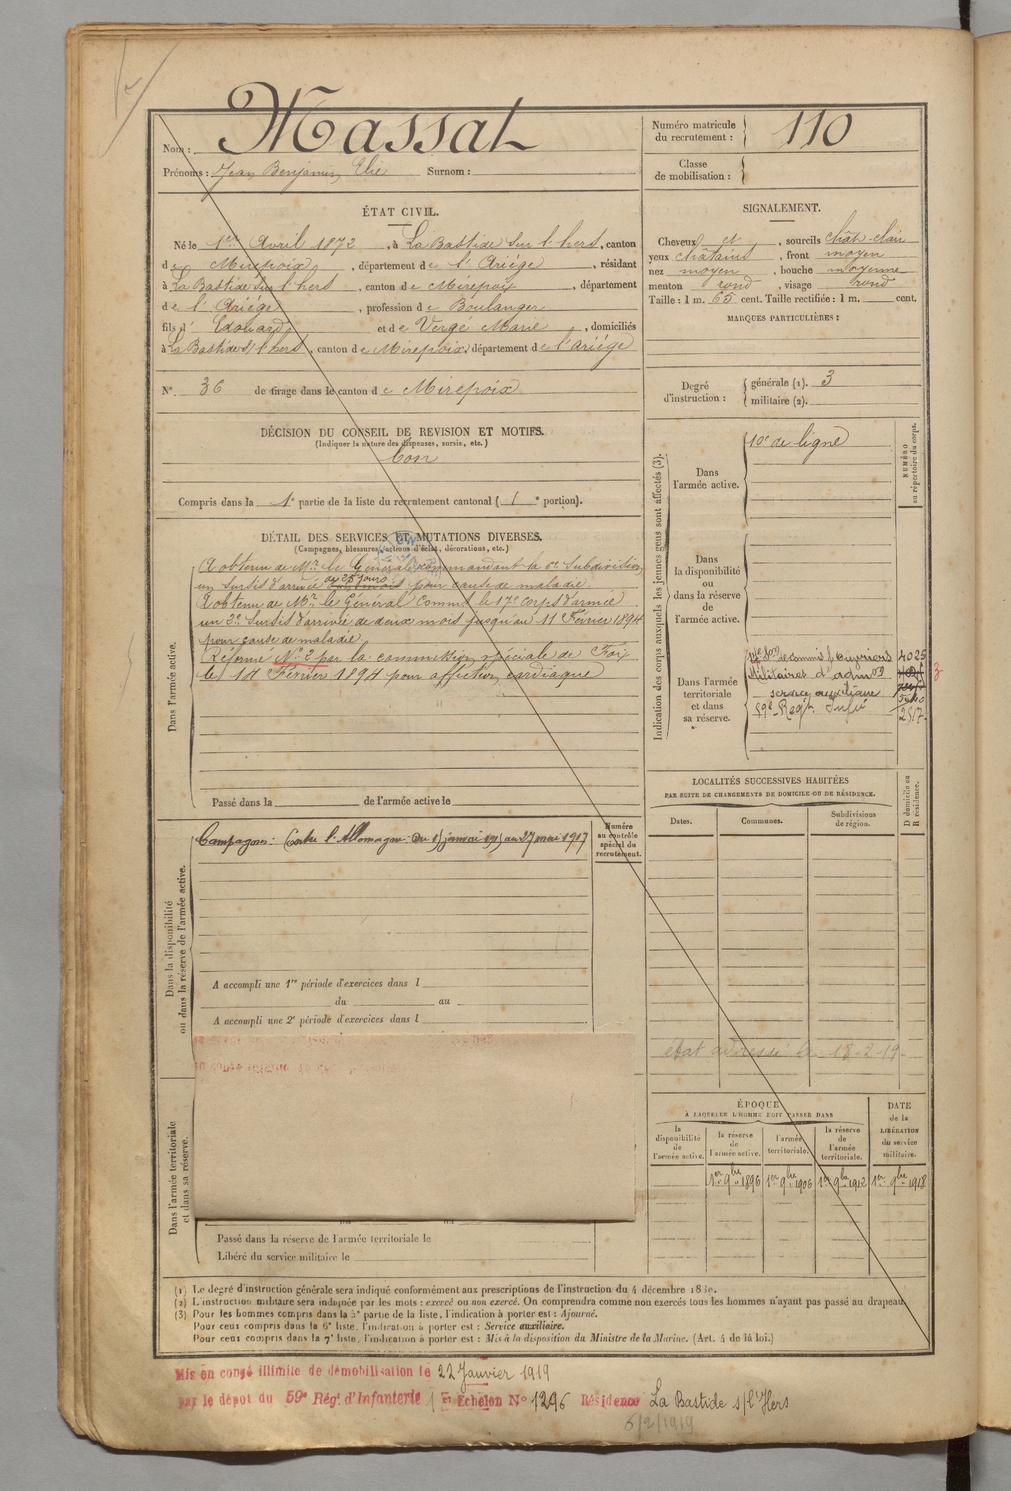 Nom : Massat
Prénoms : Jean Benjamin Elie Surnom :
Numéro matricule du recrutement : 110
Classe de mobilisation :
ÉTAT CIVIL.
Né le 1er Avril 1872, à La Bastide sur l'hers, canton
de Mirepoix, département de l'Ariége, résidant
à La Bastide sur l'hers, canton de Mirepoix, département
de l'Ariége, profession de Boulanger
fils d' Edouard et de Vergé Marie, domiciliés
à La Bastide s/ l'hers, canton de Mirepoix, département de l'ariége
SIGNALEMENT.
Cheveux et, sourcils chât-clair
yeux châtains, front moyen
nez moyen, bouche moyenne
menton rond, visage rond
Taille : 1 m. 65 cent. Taille rectifiée : 1 m. cent.
MARQUES PARTICULIÈRES :
N° 36 de tirage dans le canton de Mirepoix
Degré d'instruction : générale (1). 3
militaire (2).
DÉCISION DU CONSEIL DE REVISION ET MOTIFS.
(Indiquer la nature des dispenses, sursis, etc.)
bon
Compris dans la 1e partie de la liste du recrutement cantonal (1e portion).
DÉTAIL DES SERVICES ET MUTATIONS DIVERSES.
(Campagnes, blessures, actions d'éclat, décorations, etc.)
Dans l'armée active.
A obtenu de Mr. le Général commandant la 6e Subdivision
un sursis d'arrivée de 25 jours pour cause de maladie.
A obtenu de Mr le Général Commt le 17e corps d'armée
un 2e Sursis d'arrivée de deux mois jusqu'au 11 Février 1894
pour cause de maladie
Réformé No 2 par la commission spéciale de Foix
le 14 Février 1894 pour affection cardiaque
Passé dans la de l'armée active le
Indication des corps auxquels les jeunes gens sont affectés (3).
NUMÉRO au répertoire du corps.
Dans l'armée active.
10e de ligne
Dans la disponibilité ou dans la réserve de l'armée active.
Dans l'armée territoriale et dans sa réserve.
17e Son de commis & Ouvriers 4025
Militaires d'admon
service auxiliaire
59e Regt. Infie 2517.
Dans la disponibilité ou dans la réserve de l'armée active.
Numéro au contrôle spécial du recrutement.
Campagnes : Contre l'Allemagne : Du 15 janvier 1915 au 27 mai 1917
A accompli une 1re période d'exercices dans l
du au
A accompli une 2e période d'exercices dans l
LOCALITÉS SUCCESSIVES HABITÉES
PAR SUITE DE CHANGEMENTS DE DOMICILE OU DE RÉSIDENCE.
Dates. Communes. Subdivisions de région. D domicile ou R résidence.
état adressé le 18-2-19-
ÉPOQUE
À LAQUELLE L'HOMME DOIT PASSER DANS
la disponibilité de l'armée active. la réserve de l'armée active. l'armée territoriale. la réserve de l'armée territoriale.
DATE de la LIBÉRATION du service militaire.
1er 9bre 1896 1er 9bre 1906 1er 9bre 1912 1er 9bre 1918
Dans l'armée territoriale et dans sa réserve.
Passé dans la réserve de l'armée territoriale le
Libéré du service militaire le
(1) Le degré d'instruction générale sera indiqué conformément aux prescriptions de l'instruction du 4 décembre
(2) L'instruction militaire sera indiquée par les mots : exercé ou non exercé. On comprendra comme non exercés tous les hommes n'ayant pas passé au drapeau.
(3) Pour les hommes compris dans la 5e partie de la liste, l'indication à porter est : Ajourné.
Pour ceux compris dans la 6e liste, l'indication à porter est : Service auxiliaire.
Pour ceux compris dans la 7e liste, l'indication à porter est : Mis à la disposition du Ministre de la Marine. (Art. 4 de la loi.)
Mis en congé illimité de démobilisation le 22 Janvier 1919
par le dépôt du 59e Régt. d'Infanterie 1er Echelon No 1296 Résidence La Bastide s/l'Hers
6/2/1919